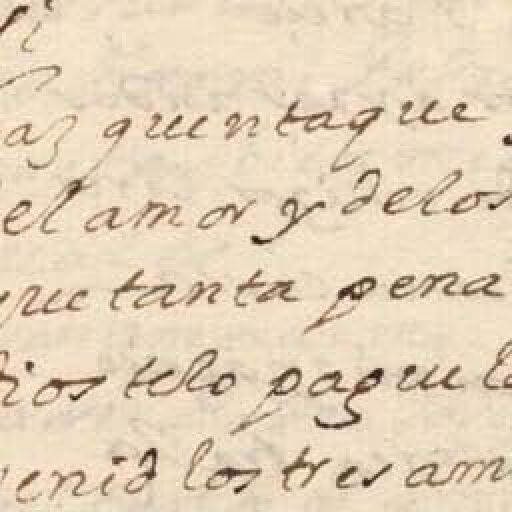 si
az quentaque
el amor y delos
que tanta pena
dios telo pague lo
venid los tres am